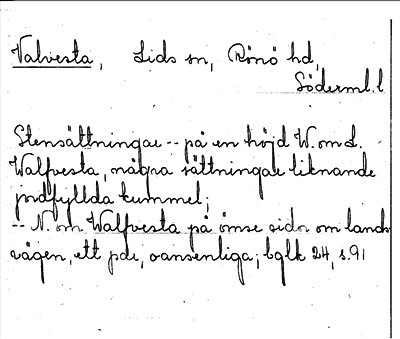 Valvesta, Lids sn, Rönö hd,
Söderml. l
Stensättningar -- på en höjd W. om L.
Walfvesta, några sättningar liknande
jordfyllda kummel;
-- N. om Walfvesta på ömse sidor om lands
vägen, ett par, oansenliga; bglk 24, s. 91